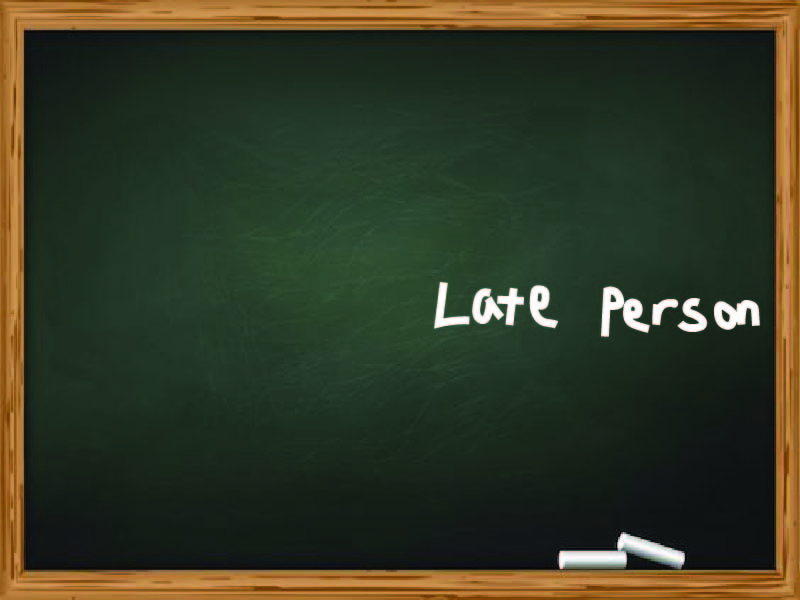 Late Person